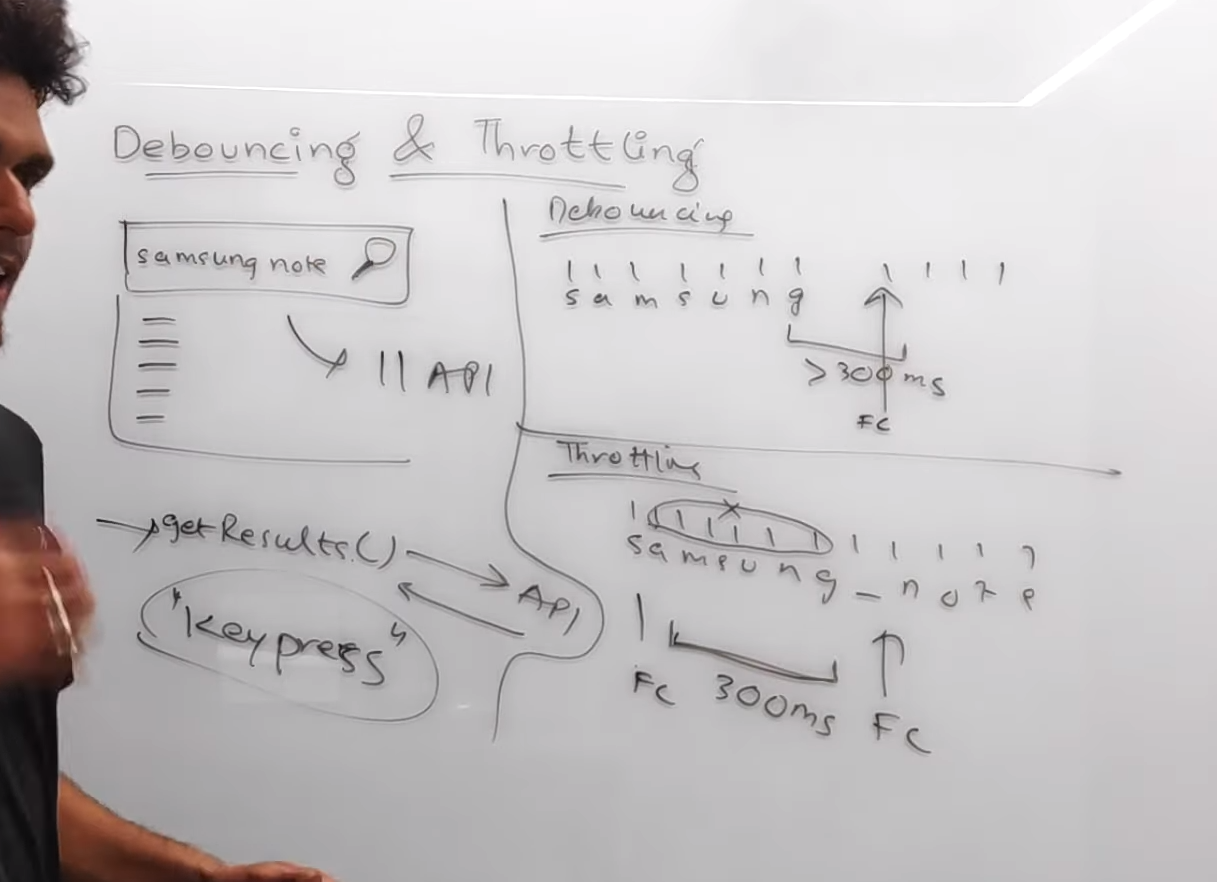 Debouncing & Throttling
samsung note
11 API
getResults.()
API
"keypress"
Debouncing
s a m s u n g
> 300 ms
FC
Throttling
s a m s u n g _ n o t e
FC 300ms FC